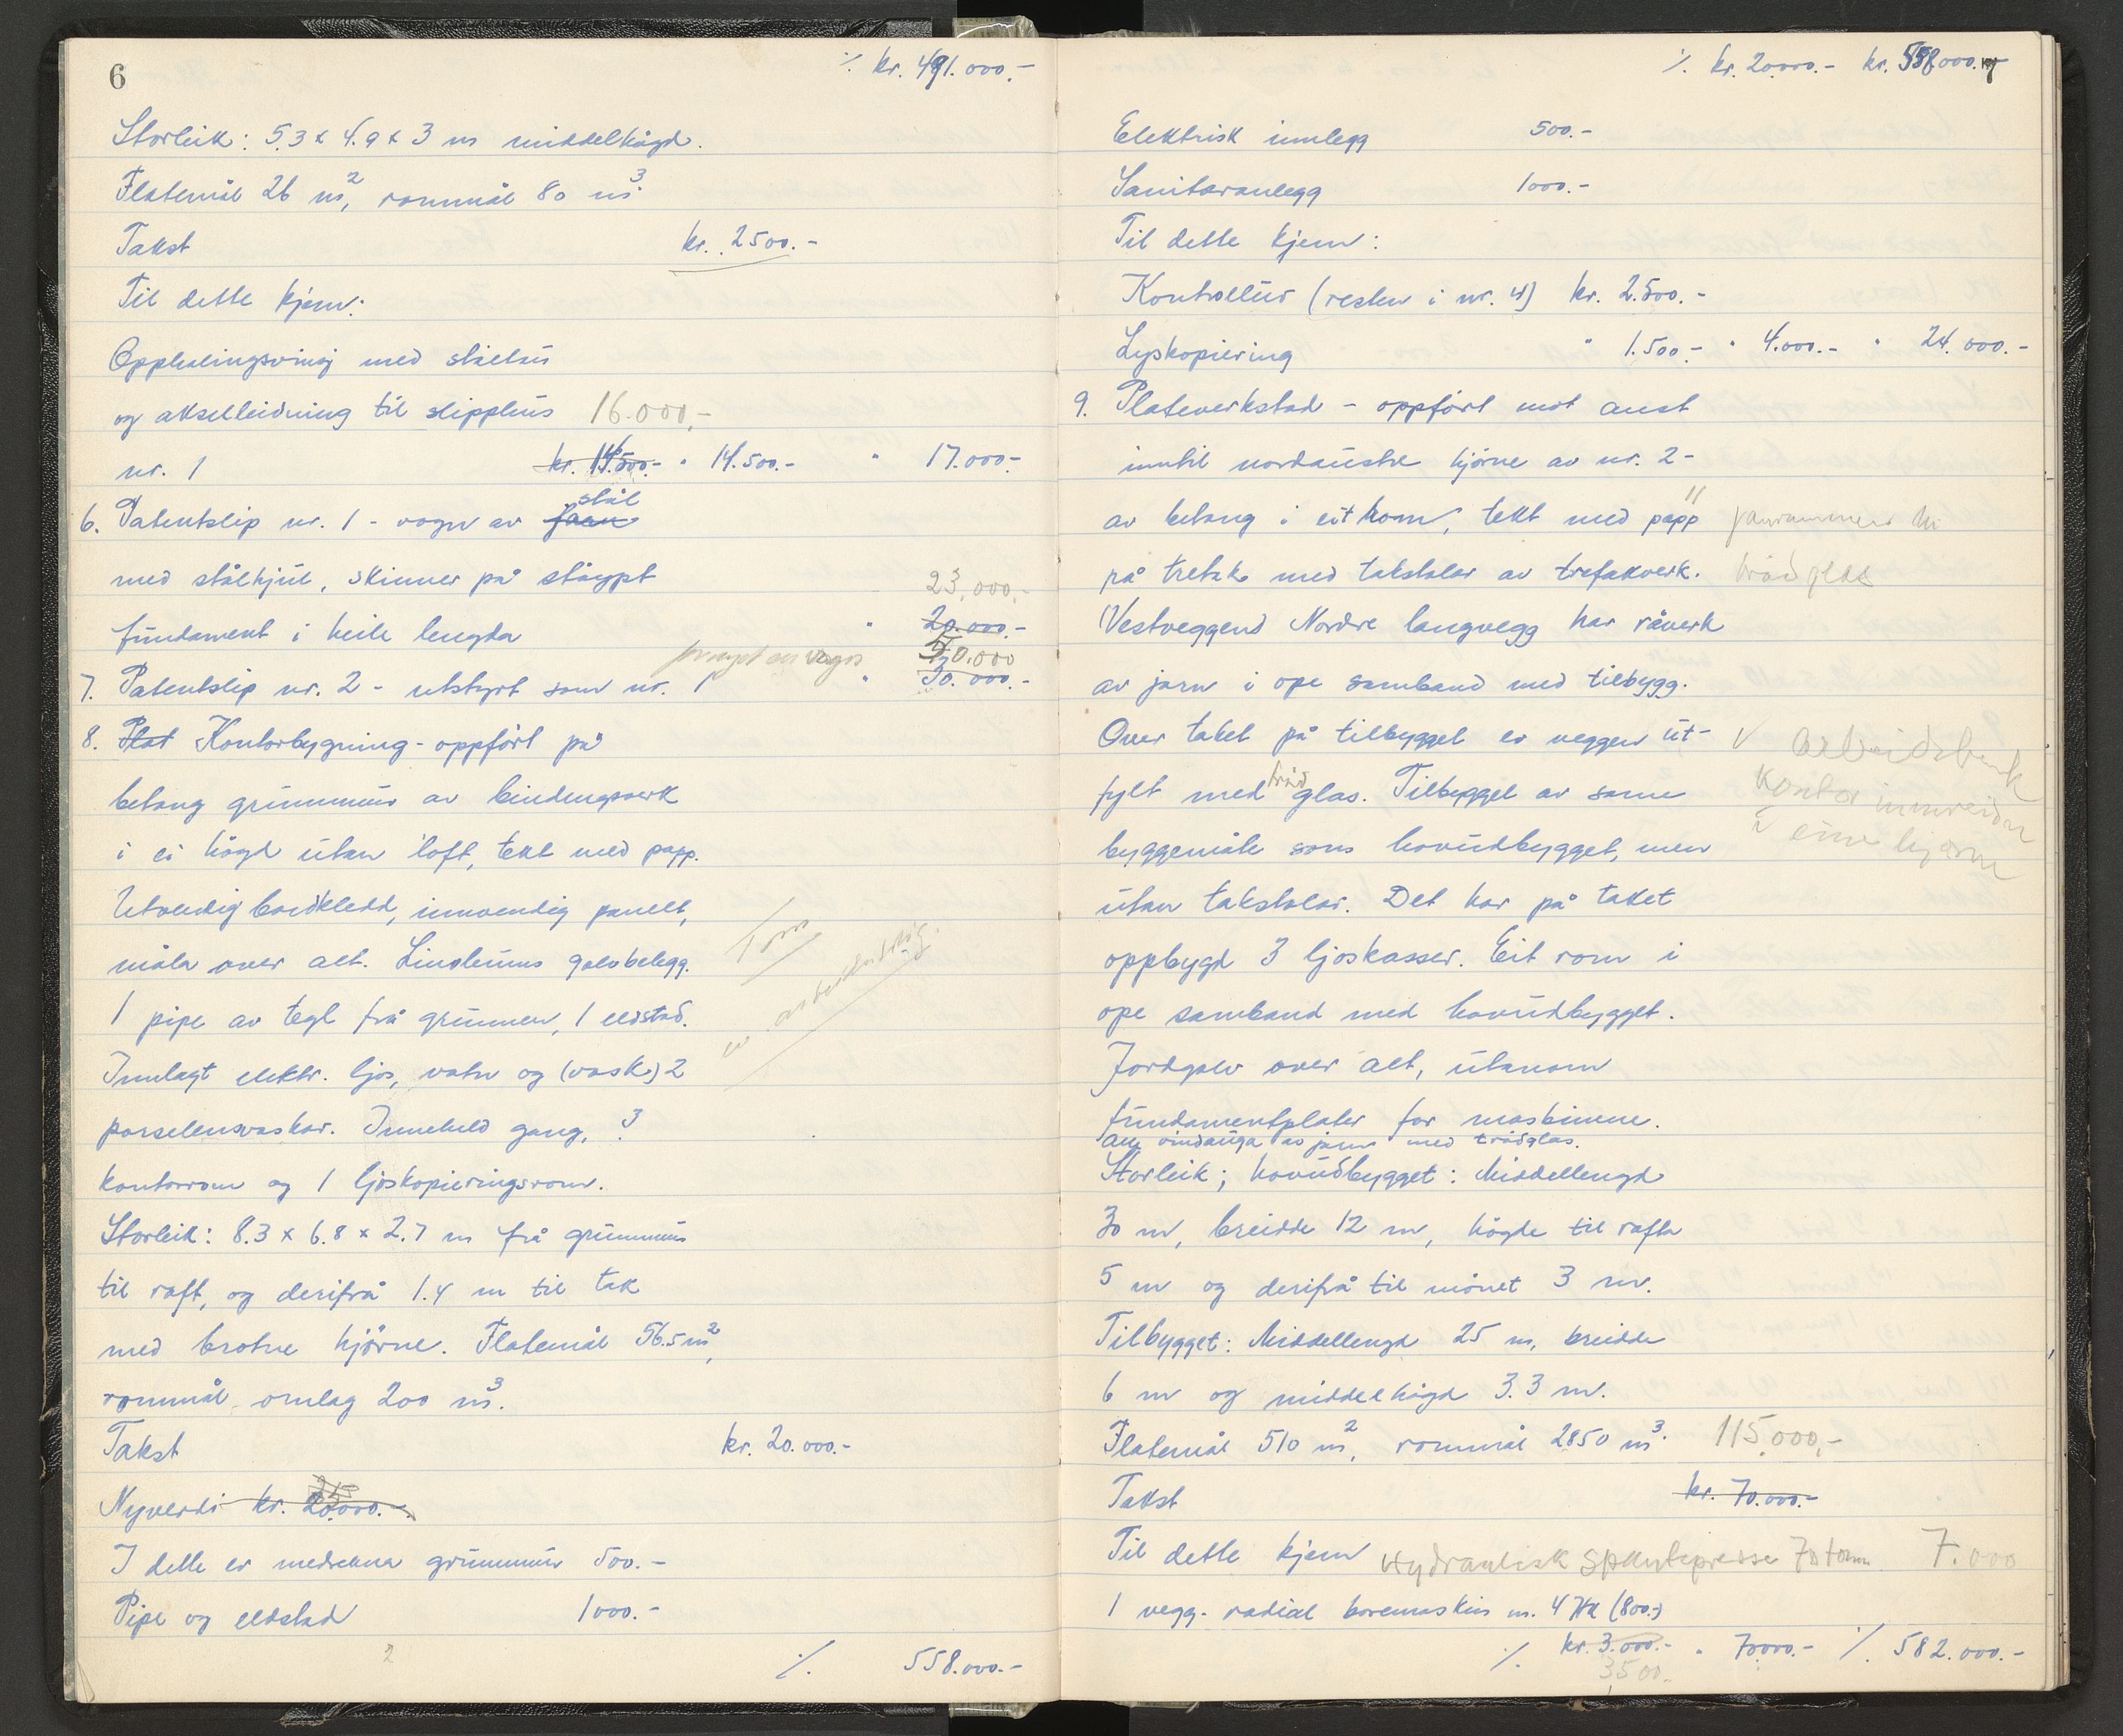 6
% kr. 491.000.-
Storleik: 5.3 x 4.9 x 3 m middelhögd.
Flatemål 26 m², rommål 80 m³.
Takst kr. 2500.-
Til dette kjem:
Opphalingsvinsj med
og akselleidning til slipphus 16.000,-
nr. 1 kr. 14.500.- " 14.500.- " 17.000.-
stål
6. Patentslip nr. 1 - vogn av jarn
med stålhjul, skinner på stöypt 23.000.-
fundament i heile lengda " 20.000.-
50.000
7. Patentslip nr. 2 - utstyrt som nr. 1 " 30.000.-
8. Plat Kontorbygning - oppfört på
betong grunnmur av bindingsverk
i ei högd utan loft, tekt med papp.
Utvendig bordkledd, innvendig panelt,
måla over alt. Linoleums golvbelegg.
1 pipe av tegl frå grunnen, 1 eldstad.
Innlagt elektr. ljos, vatn og (vask) 2
porselensvaskar. Inneheld gang, 3
kontorrom og 1 ljoskopieringsrom.
Storleik: 8.3 x 6.8 x 2.7 m frå grunnmur
til raft, og derifrå 1.4 m til tak
med brotne hjörne. Flatemål 56.5 m²,
rommål omlag 200 m³.
Takst kr. 20.000.-
25
Nyverdi kr. 20.000.-
I dette er medrekna grunnmur 500.-
Pipe og eldstad 1000.-
2
% 558.000.-
% kr. 20.000.- kr. 558.000.-
Elektrisk innlegg 500.-
Sanitæranlegg 1000.-
Til dette kjem:
Kontorutstyr (resten i nr. 4) kr. 2.500.-
Lyskopiering " 1.500.- " 4.000.- " 24.000.-
9. Plateverkstad - oppfört mot aust
inntil nordaustre hjörne av nr. 2 -
av betong i eit rom, tekt med papp
på tretak med takstolar av trefakverk. trådglas
(Vestveggen) Nordre langvegg har råverk
av jarn i ope samband med tilbygg.
Over taket på tilbygget er veggen ut- V arbeidsbenk
fylt med tråd glas. Tilbygget av same kontor innreidn
byggemåte som hovudbygget, men i eine hjörne
utan takstolar. Det har på taket
oppbygd 3 ljoskasser. Eit rom i
ope samband med hovudbygget.
Jordgolv over alt, utanom
fundamentplater for maskinene.
Alle vindauga av jarn med trådglas.
Storleik; hovudbygget: Middellengd
30 m, breidde 12 m, högde til rafta
5 m og derifrå til mönet 3 m.
Tilbygget: Middellengd 25 m, breidde
6 m og middelhögd 3.3 m.
Flatemål 510 m², rommål 2850 m³. 115.000,-
Takst kr. 70.000.-
Til dette kjem Hydraulisk spantepresse 70 tonn 7.000
1 vegg. radial boremaskin m. 4 HK (800.-)
% kr. 3.000.- " 70.000.- % 582.000.-
3500.-